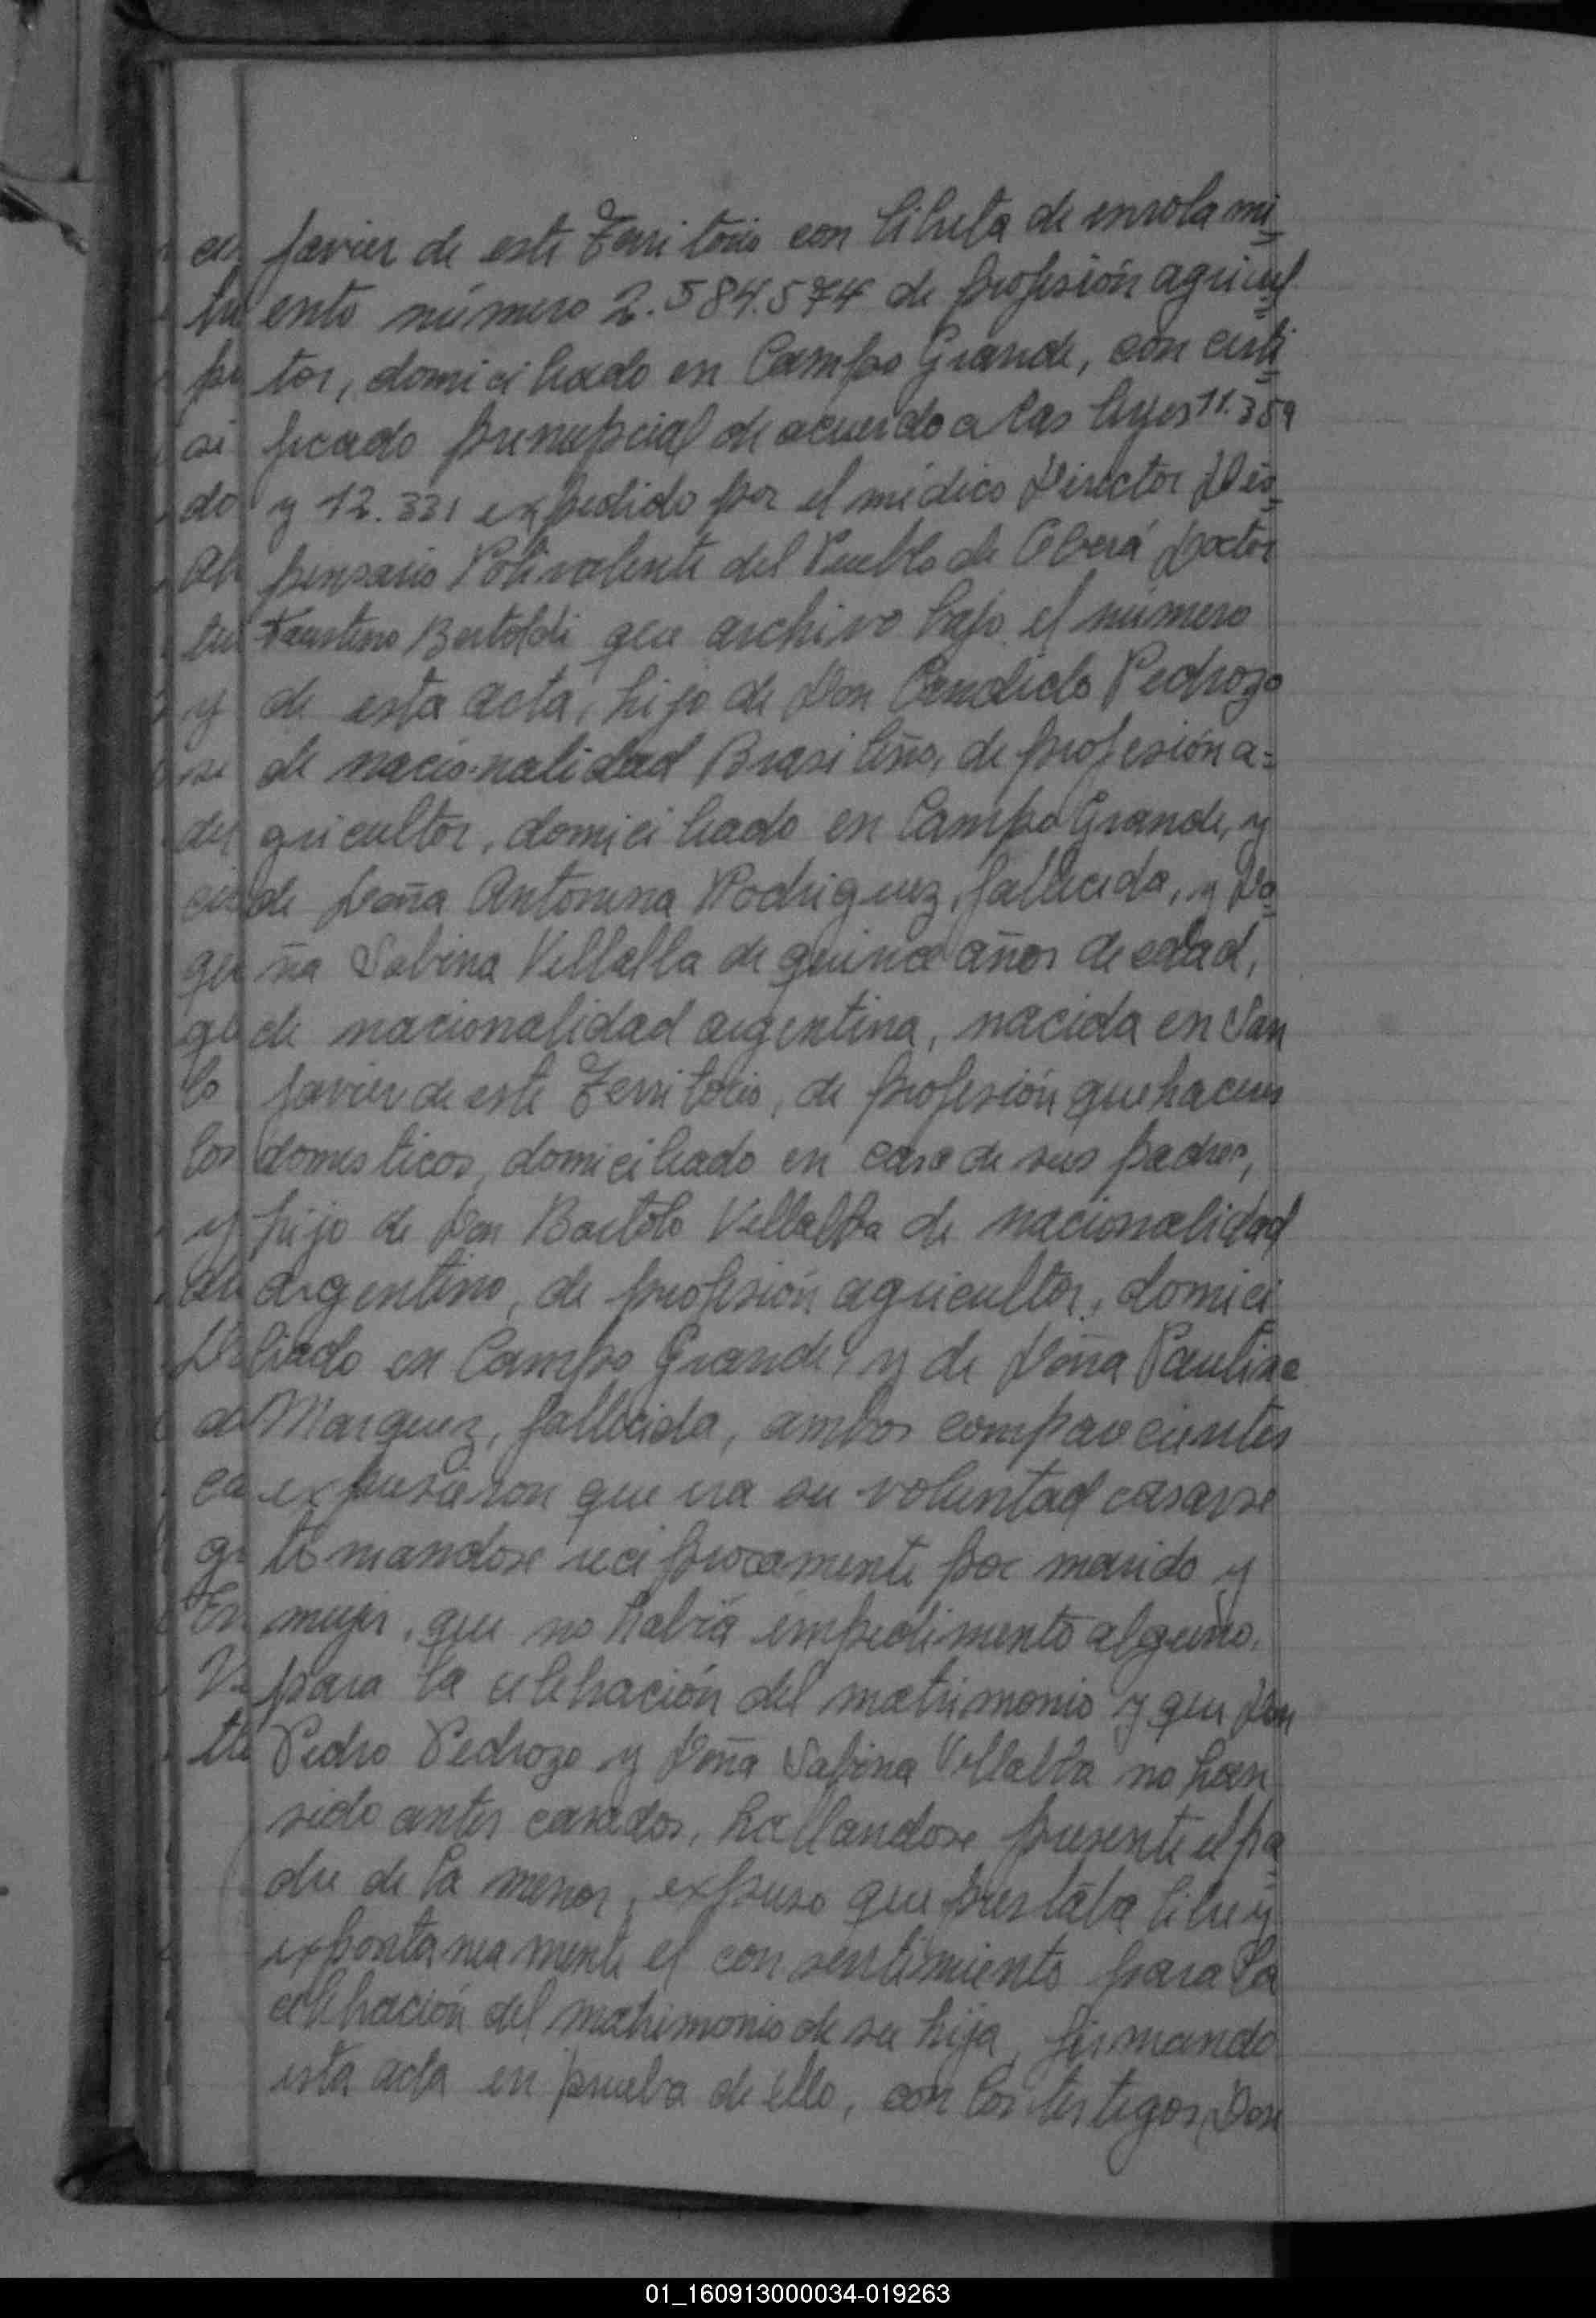 Javier de este Territorio con libreta de enrolami=
ento número 2.584.574 de profesión agricul=
tor, domiciliado en Campo Grande, con certi=
ficado prenupcial de acuerdo a las leyes 11.359
y 12.331 expedido por el médico Director Dis=
pensario Polivalente del Pueblo de Oberá Doctor
Faustino Bertoldi que archivo bajo el número
de esta acta, hijo de Don Candido Pedrozo
de nacionalidad Brasileño, de profesión a=
gricultor, domiciliado en Campo Grande, y
de Doña Antonina Rodriguez, fallecida, y Do=
ña Sabina Villalba de quince años de edad,
de nacionalidad argentina, nacida en San
Javier de este Territorio, de profesión quehaceres
domesticos, domiciliado en casa de sus padres,
hijo de Don Bartolo Villalba de nacionalidad
argentino, de profesión agricultor, domici=
liado en Campo Grande, y de Doña Paulina
Marquez, fallecida, ambos comparecientes
expusieron que era su voluntad casarse
tomandose reciprocamente por marido y
mujer, que no habia impedimento alguno.
para la celebración del matrimonio y que Don
Pedro Pedrozo y Doña Sabina Villalba no han
sido antes casados, hallandose presente el pa=
dre de la menor, expuso que prestaba libre y
expontaneamente el consentimiento para la
celebración del matrimonio de su hija, firmando
esta acta en prueba de ello, con los testigos, Don
01_160913000034-019263